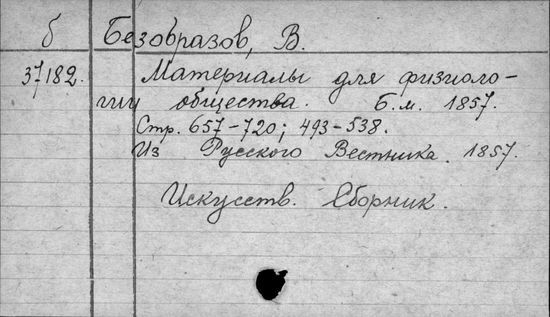 б Безобразов, В.
37182. Материалы для физиоло-
гии общества. Б.м. 1857.
Стр. 657-720; 493-538.
Из Русского Вестника. 1857.
Искусств. Сборник.